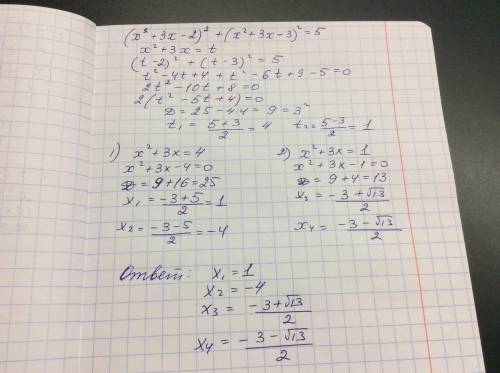 (x² + 3x - 2)² + (x² + 3x - 3)² = 5
x² + 3x = t
(t - 2)² + (t - 3)² = 5
t² - 4t + 4 + t² - 6t + 9 - 5 = 0
2t² - 10t + 8 = 0
2(t² - 5t + 4) = 0
D = 25 - 4·4 = 9 = 3²
t₁ = (5 + 3)/2 = 4 t₂ = (5 - 3)/2 = 1
1) x² + 3x = 4
x² + 3x - 4 = 0
D = 9 + 16 = 25
x₁ = (-3 + 5)/2 = 1
x₂ = (-3 - 5)/2 = -4
2) x² + 3x = 1
x² + 3x - 1 = 0
D = 9 + 4 = 13
x₃ = (-3 + √13)/2
x₄ = (-3 - √13)/2
Ответ: x₁ = 1
x₂ = -4
x₃ = (-3 + √13)/2
x₄ = (-3 - √13)/2